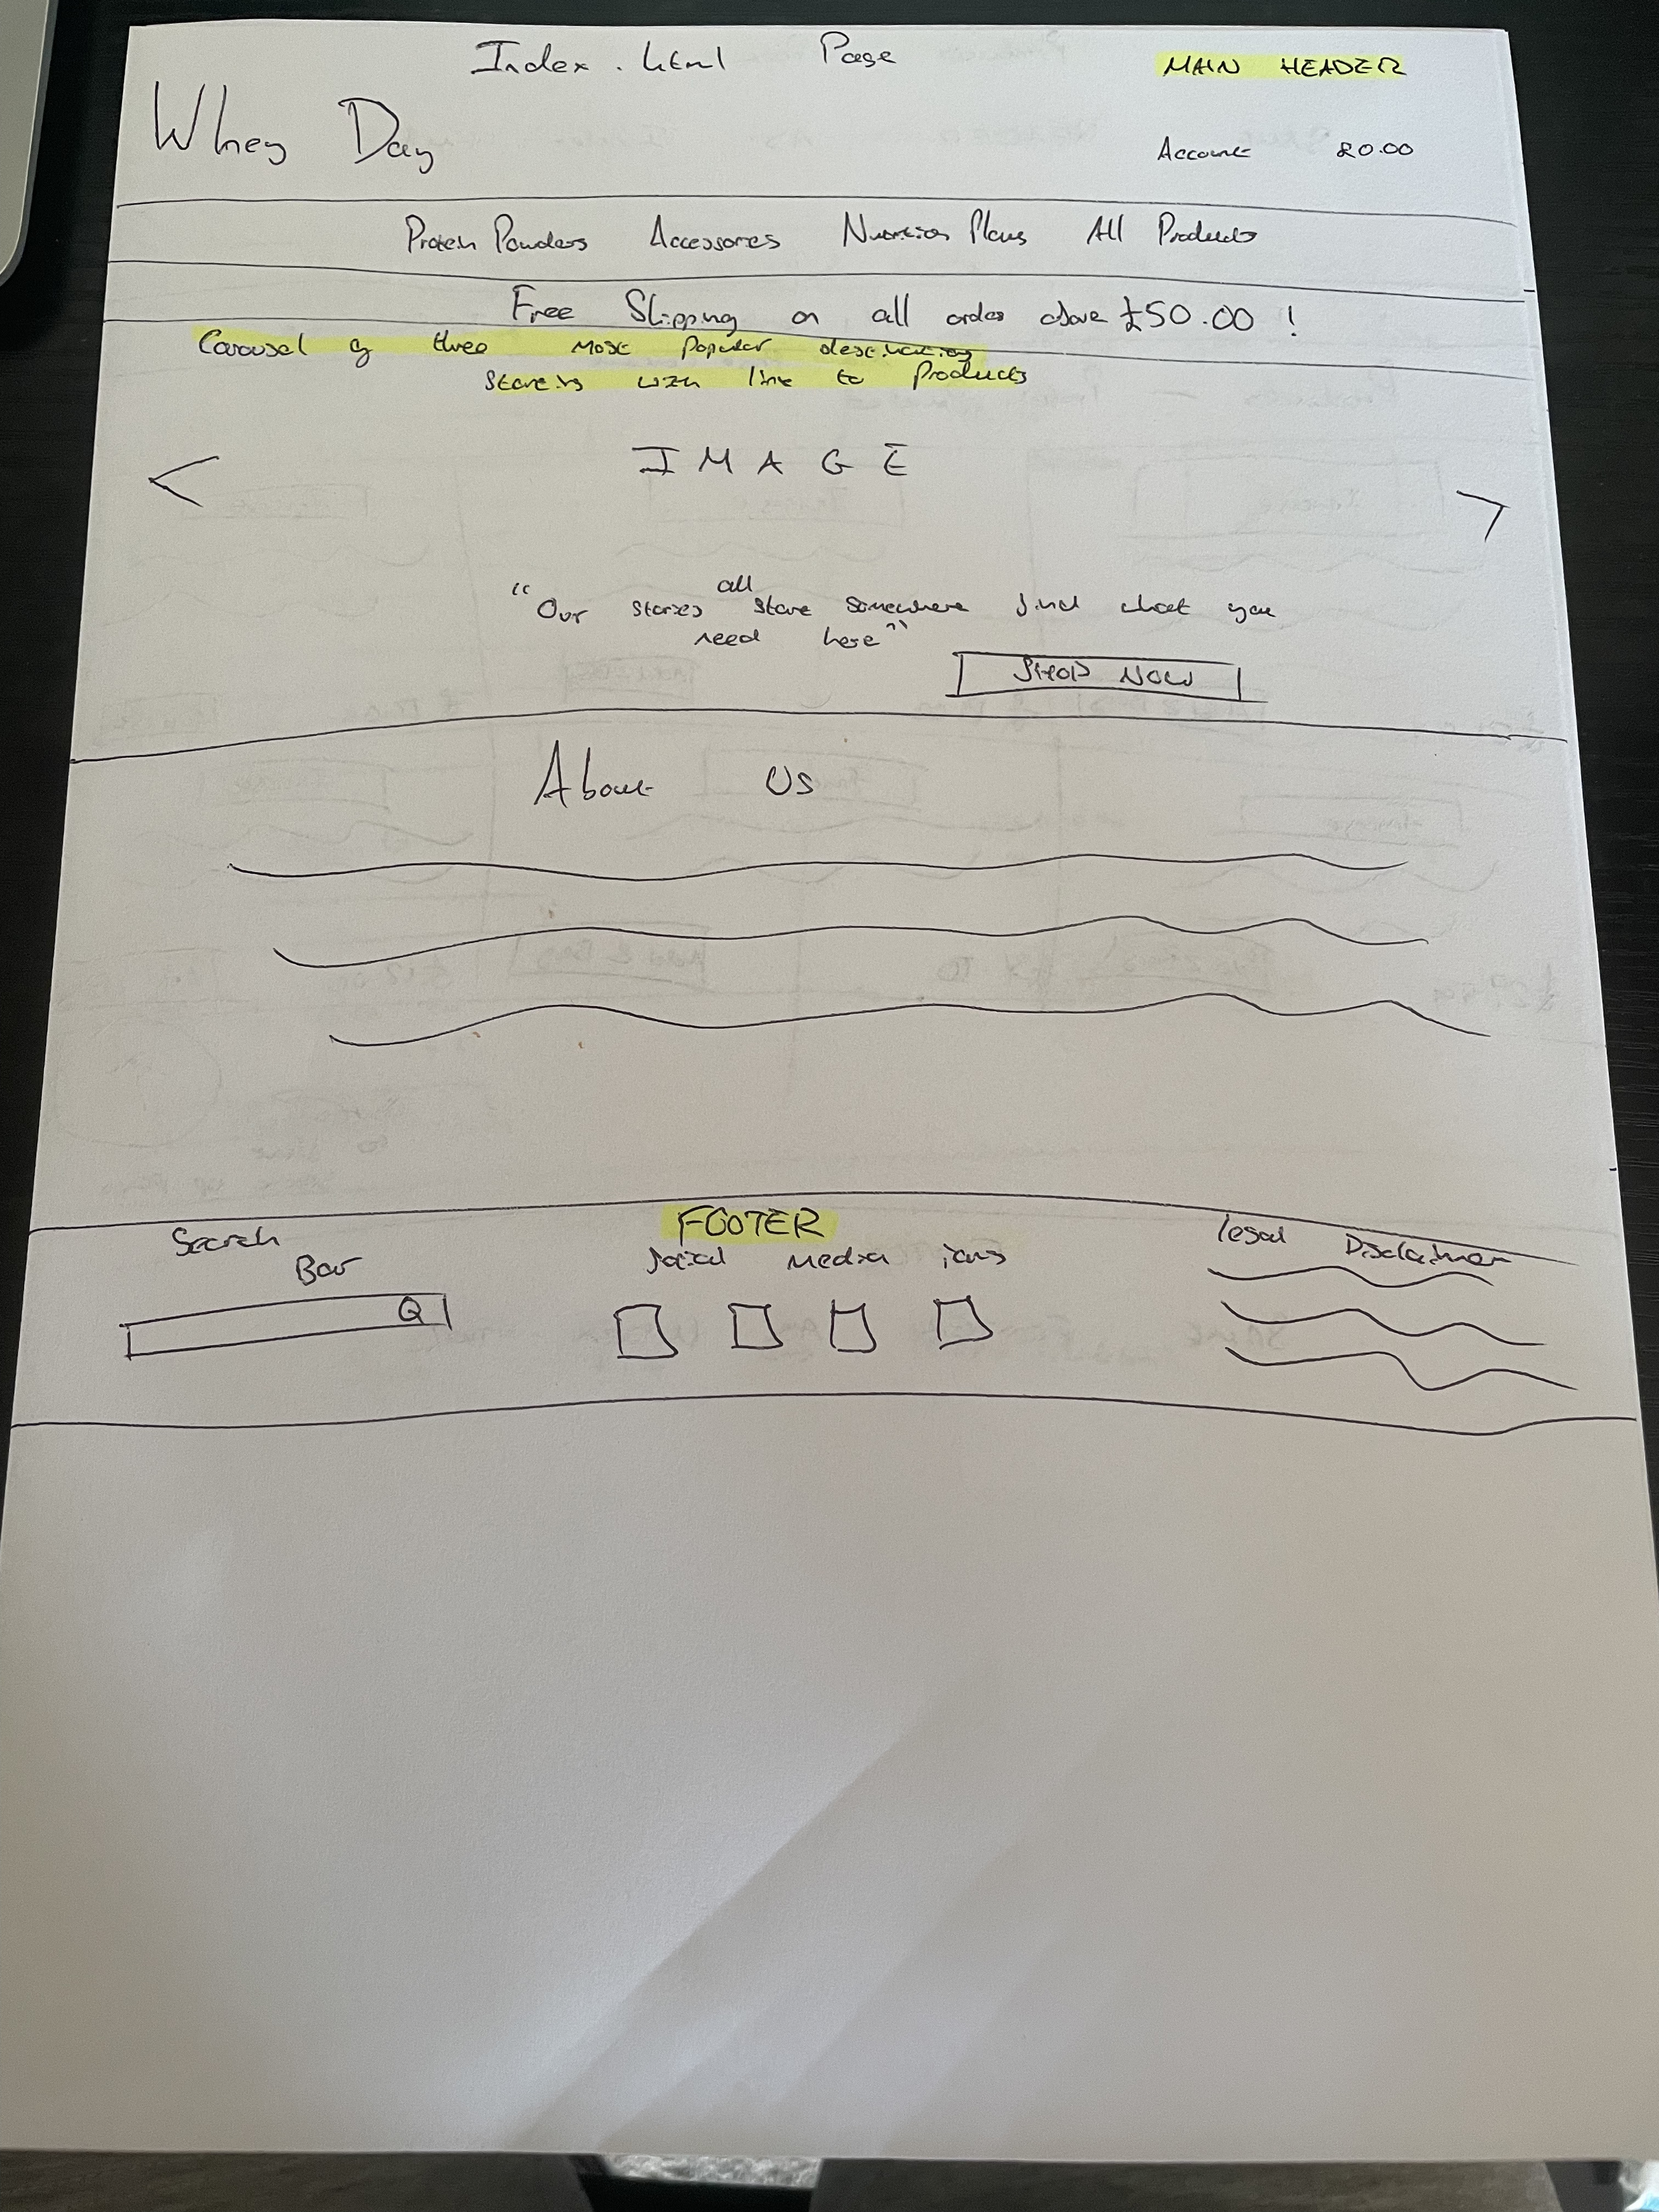 Index.html Page
MAIN HEADER
Whey Day
Account £0.00
Protein Powders Accessories Nutrition Plans All Products
Free Shipping on all orders above £50.00 !
Carousel of three most popular
with link to Products
<
IMAGE
>
"Our stories all start somewhere find what you
need here"
SHOP NOW
About Us
FOOTER
Search
Bar
Social Media icons
legal Disclaimer